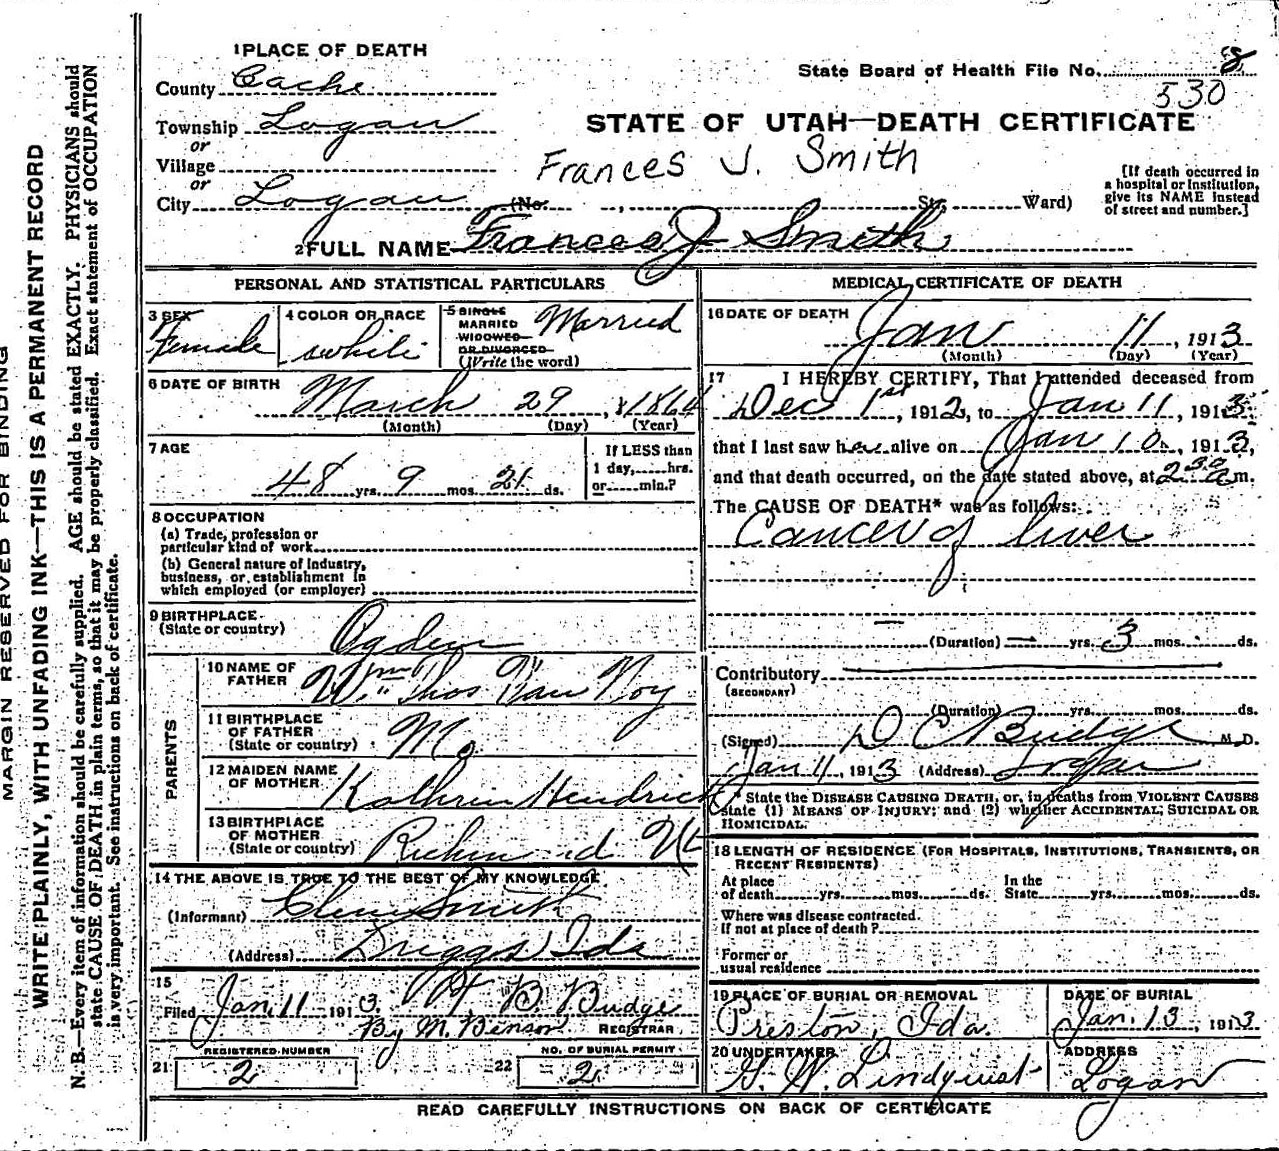 MARGIN RESERVED FOR BINDING
WRITE PLAINLY, WITH UNFADING INK—THIS IS A PERMANENT RECORD
N. B.—Every item of information should be carefully supplied. AGE should be stated EXACTLY. PHYSICIANS should
state CAUSE OF DEATH in plain terms, so that it may be properly classified. Exact statement of OCCUPATION
is very important. See instructions on back of certificate.
1 PLACE OF DEATH
County Cache
Township Logan
or
Village
or
City Logan (No. , St. Ward)
State Board of Health File No. 8
530
STATE OF UTAH—DEATH CERTIFICATE
Frances J. Smith
[If death occurred in
a hospital or institution,
give its NAME instead
of street and number.]
2 FULL NAME Frances J Smith
PERSONAL AND STATISTICAL PARTICULARS
3 SEX
Female
4 COLOR OR RACE
white
5 SINGLE
MARRIED
WIDOWED
OR DIVORCED
(Write the word)
Married
6 DATE OF BIRTH
March 29, 1864
(Month) (Day) (Year)
7 AGE
48 yrs. 9 mos. 21 ds.
If LESS than
1 day, hrs.
or min.?
8 OCCUPATION
(a) Trade, profession or
particular kind of work
(b) General nature of Industry,
business, or establishment in
which employed (or employer)
9 BIRTHPLACE
(State or country)
Ogden
PARENTS
10 NAME OF
FATHER
Wm Thos Van Noy
11 BIRTHPLACE
OF FATHER
(State or country)
Mo
12 MAIDEN NAME
OF MOTHER
Kathrin Hendricks
13 BIRTHPLACE
OF MOTHER
(State or country)
Richmond Ut
14 THE ABOVE IS TRUE TO THE BEST OF MY KNOWLEDGE
(Informant) Smith
(Address) Driggs Ida
15
Filed Jan. 11 1913. B. Budge
By M. Benson REGISTRAR
REGISTERED NUMBER
21 2
NO. OF BURIAL PERMIT
22 2
MEDICAL CERTIFICATE OF DEATH
16 DATE OF DEATH
Jan 11, 1913
(Month) (Day) (Year)
17 I HEREBY CERTIFY, That I attended deceased from
Dec 1st, 1912, to Jan 11, 1913
that I last saw her alive on Jan 10, 1913,
and that death occurred, on the date stated above, at 2 30 a m.
The CAUSE OF DEATH* was as follows:
Cancer of liver
(Duration) yrs. 3 mos. ds.
Contributory
(SECONDARY)
(Duration) yrs. mos. ds.
(Signed) D C Budge M. D.
Jan 11, 1913 (Address) Logan
* State the DISEASE CAUSING DEATH, or, in deaths from VIOLENT CAUSES
state (1) MEANS OF INJURY; and (2) whether ACCIDENTAL, SUICIDAL OR
HOMICIDAL.
18 LENGTH OF RESIDENCE (FOR HOSPITALS, INSTITUTIONS, TRANSIENTS, OR
RECENT RESIDENTS)
At place
of death yrs. mos. ds.
In the
State yrs. mos. ds.
Where was disease contracted.
If not at place of death?
Former or
usual residence
19 PLACE OF BURIAL OR REMOVAL
Preston, Ida.
DATE OF BURIAL
Jan. 13, 1913
20 UNDERTAKER
G. W. Lindquist
ADDRESS
Logan
READ CAREFULLY INSTRUCTIONS ON BACK OF CERTIFICATE